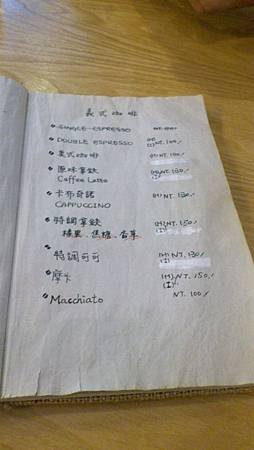 義式咖啡
SINGLE ESPRESSO NT.
DOUBLE ESPRESSO (I) NT. 100./
美式咖啡 (H) NT. 100./
原味拿鐵 (H) NT. 130./
Caffee Latte (I)
卡布奇諾 (H) NT. 130./
CAPPUCCINO
特調拿鐵 (H) NT. 150./
榛果、焦糖、香草 (I)
特調可可 (H) NT. 130./
摩卡 (H) NT. 150./
(I)
Macchiato NT. 100./